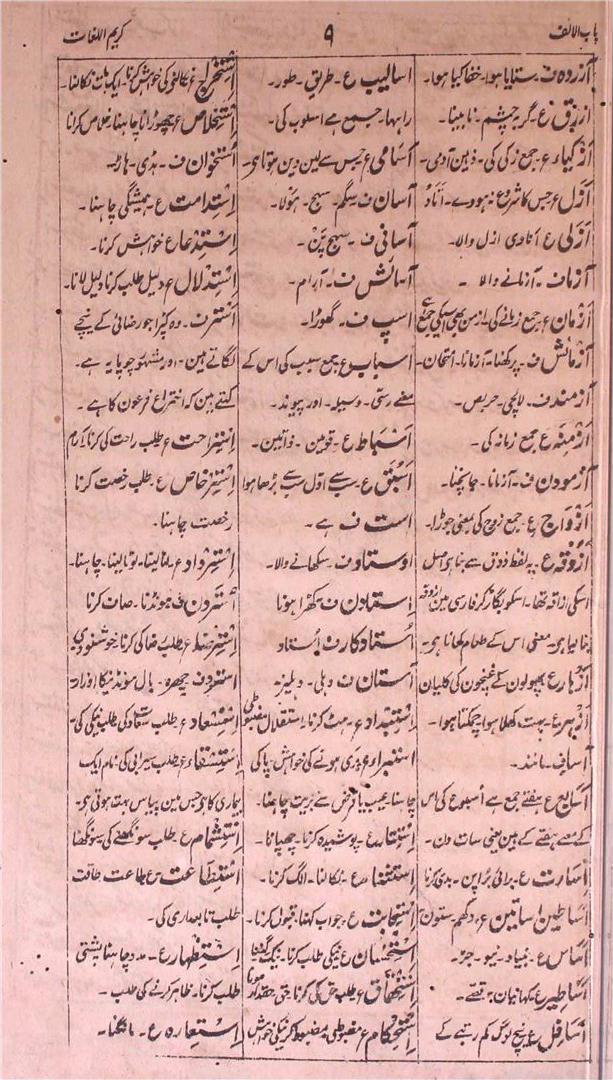 باب الالف
۹
کریم اللغات
آزردہ ف ۔ ستایا ہوا ۔ خفا کیا ہوا ۔
ازرق ع ۔ گربہ چشم ۔ نابینا ۔
ازکیاء ع ۔ جمع زکی کی ۔ ذہین آدمی ۔
ازل ع جس کا شروع نہ ہووے ۔
ازلی ع انادی ازل والا ۔
آزما ف ۔ آزمانے والا ۔
ازمان ع ۔ جمع زمانے کی ۔ ازمن بھی اسکی جمع ہے
آزمائش ف ۔ پرکھنا ۔ آزمانا ۔ امتحان ۔
آزمند ف ۔ لالچی ۔ حریص ۔
ازمنہ ع جمع زمانہ کی ۔
آزمودن ف ۔ آزمانا ۔ جانچنا ۔
ازواج ع ۔ جمع زوج کی بمعنی جوڑا ۔
ازوقہ ع ۔ یہ لفظ ذوق سے بنا ہے اصل
اسکی اذاقہ تھا ۔ اسکو بگاڑ کر فارسی مین ازوقہ
بنا لیا ہی ۔ معنی اس کے طعام کھانا ہی ۔
ازہار ع پھولون کے غنچون کی کلیان
ازہر ع ۔ بہت کھلا ہوا چمکتا ہوا ۔
آسا ف ۔ مانند ۔
اسابیع ع ہفتے جمع ہے اسبوع کی اس
کے معنے ہفتے کے ہین یعنی سات دن ۔
اسارت ع ۔
اساطین اساتین ع ۔ ستون
اساس ع ۔ بنیاد ۔ نیو ۔ جڑ ۔
اساطیر ع ۔ کہانیان ۔ قصے ۔
اسافل ع نیچ لوگ کم رتبے کے
اسالیب ع ۔ طریق ۔ طور ۔
راہہا ۔ جمع ہے اسلوب کی ۔
اسامی ع جس سے لین دین ہوتا ہی ۔
آسان ف سگم ۔ سہج ۔ ہولا ۔
آسانی ف ۔ سہج پن ۔
آسائش ف ۔ آرام ۔
اسپ ف ۔ گھوڑا ۔
اسباب ع جمع سبب کی اس کے
معنے رستی ۔ وسیلہ ۔ اور پیوند ۔
اسباط ع ۔ قومین ۔ ذاتین ۔
اسبق ع ۔ سب سے اول سب سے بڑھا ہوا
است ف ہے ۔
اوستاد ف ۔ سکھانے والا ۔
استادن ف ۔ کھڑا ہونا
استادکار ف استاد
آستان ف دہلی ۔ دہلیز ۔
استبداد ع ۔ ہٹ کرنا ۔ استقلال مضبوطی
استبراء ع بری ہونے کی خواہش پاکی
چاہنا ۔ عیب یا قرض سے بریت چاہنا ۔
استتار ع ۔ پوشیدہ کرنا ۔ چھپانا ۔
استثنا ع ۔ نکالنا ۔ الگ کرنا ۔
استجابت ع ۔ جواب کہنا ۔ قبول کرنا ۔
استحسان ع نیکی طلب کرنا ۔
استحقاق ع طلب حق کی کرنا ۔ حقدار ہونا
استحکام ع مضبوطی مضبوط کرنیکی خواہش
استخراج ع نکالنے کی خواہش کرنا ۔ ایک بات نکالنا ۔
استخلاص ع چھوڑانا چاہنا ۔ خلاص کرانا
استخوان ف ۔ ہڈی ۔ ہاڑ ۔
استدامت ع ۔ ہمیشگی چاہنا ۔
استدعا ع خواہش کرنا ۔
استدلال ع دلیل طلب کرنا دلیل لانا ۔
استر ف ۔ وہ کپڑا جو رضائی کے نیچے
لگاتے ہین ۔ اور مشہور چوپایہ ہے ۔
کہتے ہین کہ اختراع فرعون کا ہے ۔
استراحت ع طلب راحت کی کرنا ۔ آرام
استرخاص ع ۔ طلب رخصت کرنا
رخصت چاہنا ۔
استرداد ع ۔ لوٹا لینا ۔ چاہنا ۔
استردن ف مونڈنا ۔ صاف کرنا
استرضا ع طلب رضا کی کرنا ۔ خوشنودی
استرہ ف چھرہ ۔ بال مونڈنیکا اوزار ۔
استسعاد ع ۔ طلب سعادت کی طلب نیکی کی ۔
استسقاء ع طلب سیرابی کی نام ایک
بیماری کا ہو جس مین پیاس بہت ہوتی ہو ۔
استشمام ع ۔ طلب سونگھنے کی سونگھنا
استطاعت ع ۔ طاعت طاقت
طلب تابعداری کی ۔
استظہار ع ۔ مدد چاہنا پشتی
طلب کرنا ۔ ظاہر کرنے کی طلب ۔
استعارہ ع ۔ مانگنا ۔